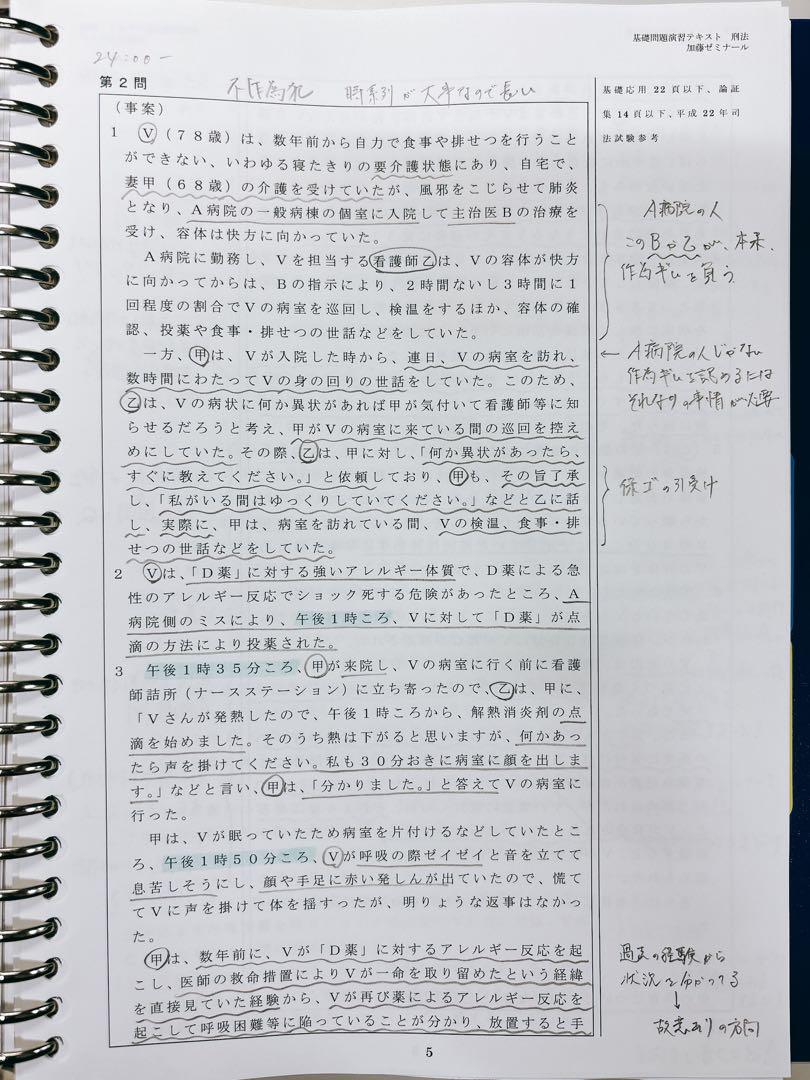 基礎問題演習テキスト 刑法
加藤ゼミナール
24:00-
第2問
不作為犯 時系列が大事なので長い
基礎応用22頁以下、論証
集14頁以下、平成22年司
法試験参考
(事案)
1 V(78歳)は、数年前から自力で食事や排せつを行うこと
ができない、いわゆる寝たきりの要介護状態にあり、自宅で、
妻甲(68歳)の介護を受けていたが、風邪をこじらせて肺炎
となり、A病院の一般病棟の個室に入院して主治医Bの治療を
受け、容体は快方に向かっていた。
A病院に勤務し、Vを担当する看護師乙は、Vの容体が快方
に向かってからは、Bの指示により、2時間ないし3時間に1
回程度の割合でVの病室を巡回し、検温をするほか、容体の確
認、投薬や食事・排せつの世話などをしていた。
一方、甲は、Vが入院した時から、連日、Vの病室を訪れ、
数時間にわたってVの身の回りの世話をしていた。このため、
乙は、Vの病状に何か異状があれば甲が気付いて看護師等に知
らせるだろうと考え、甲がVの病室に来ている間の巡回を控え
めにしていた。その際、乙は、甲に対し、「何か異状があったら、
すぐに教えてください。」と依頼しており、甲も、その旨了承
し、「私がいる間はゆっくりしていてください。」などと乙に話
し、実際に、甲は、病室を訪れている間、Vの検温、食事・排
せつの世話などをしていた。
2 Vは、「D薬」に対する強いアレルギー体質で、D薬による急
性のアレルギー反応でショック死する危険があったところ、A
病院側のミスにより、午後1時ころ、Vに対して「D薬」が点
滴の方法により投薬された。
3 午後1時35分ころ、甲が来院し、Vの病室に行く前に看護
師詰所(ナースステーション)に立ち寄ったので、乙は、甲に、
「Vさんが発熱したので、午後1時ころから、解熱消炎剤の点
滴を始めました。そのうち熱は下がると思いますが、何かあっ
たら声を掛けてください。私も30分おきに病室に顔を出しま
す。」などと言い、甲は、「分かりました。」と答えてVの病室に
行った。
甲は、Vが眠っていたため病室を片付けるなどしていたとこ
ろ、午後1時50分ころ、Vが呼吸の際ゼイゼイと音を立てて
息苦しそうにし、顔や手足に赤い発しんが出ていたので、慌て
てVに声を掛けて体を揺すったが、明りょうな返事はなかっ
た。
甲は、数年前に、Vが「D薬」に対するアレルギー反応を起
こし、医師の救命措置によりVが一命を取り留めたという経緯
を直接見ていた経験から、Vが再び薬によるアレルギー反応を
起こして呼吸困難等に陥っていることが分かり、放置すると手
A病院の人
このBや乙が、本来、
作為ギムを負う
← A病院の人じゃない
作為ギムを認めるには
それなりの事情が必要
保ゴの引受け
過去の経験から
状況を分かってる
↓
故意ありの方向
5